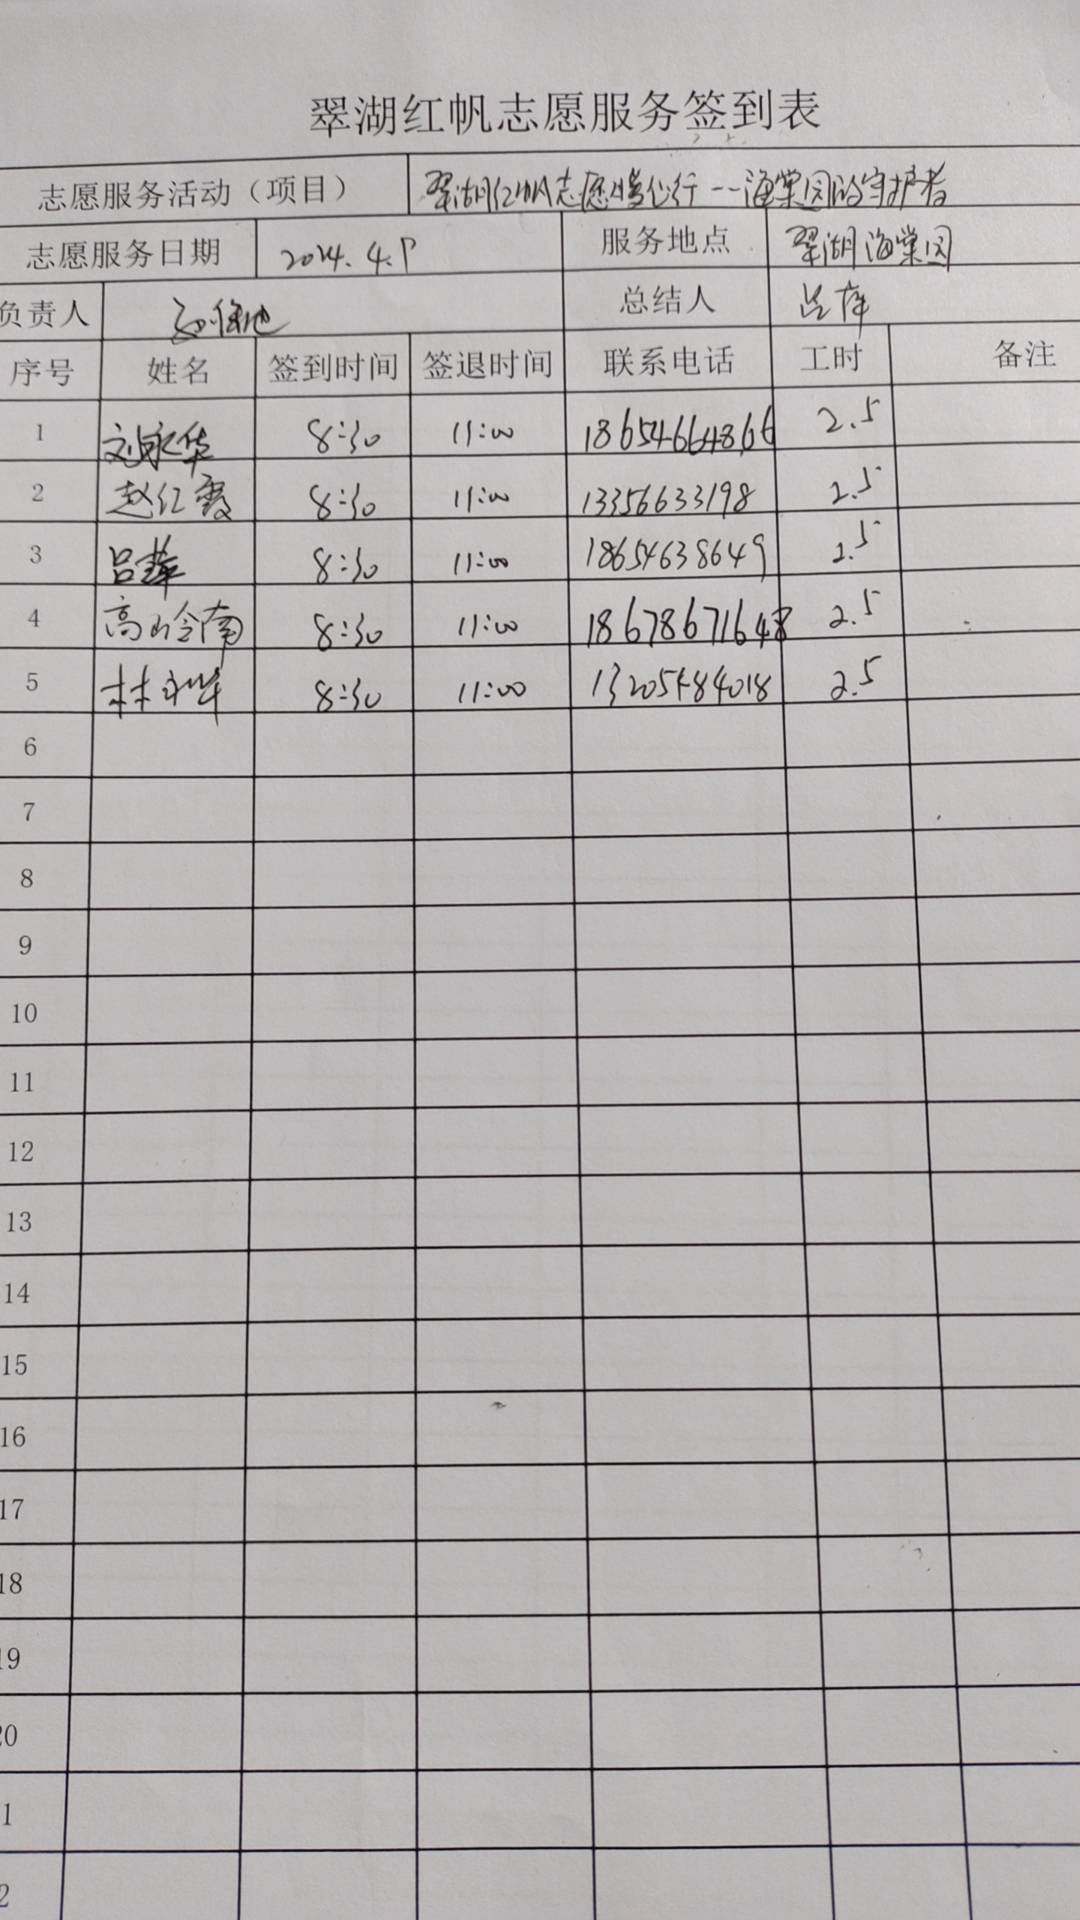 翠湖红帆志愿服务签到表
志愿服务活动（项目） 翠湖红帆志愿 行--海棠园的守护者
志愿服务日期 2024.4. 服务地点 翠湖海棠园
负责人 总结人 吕萍
序号 姓名 签到时间 签退时间 联系电话 工时 备注
1 刘永华 8:30 11:00 18654664866 2.5
2 赵红霞 8:30 11:00 13356633198 2.5
3 吕萍 8:30 11:00 18654638649 2.5
4 高岭南 8:30 11:00 18678671648 2.5
5 林永华 8:30 11:00 13205484018 2.5
6
7
8
9
10
11
12
13
14
15
16
17
18
19
20
1
2